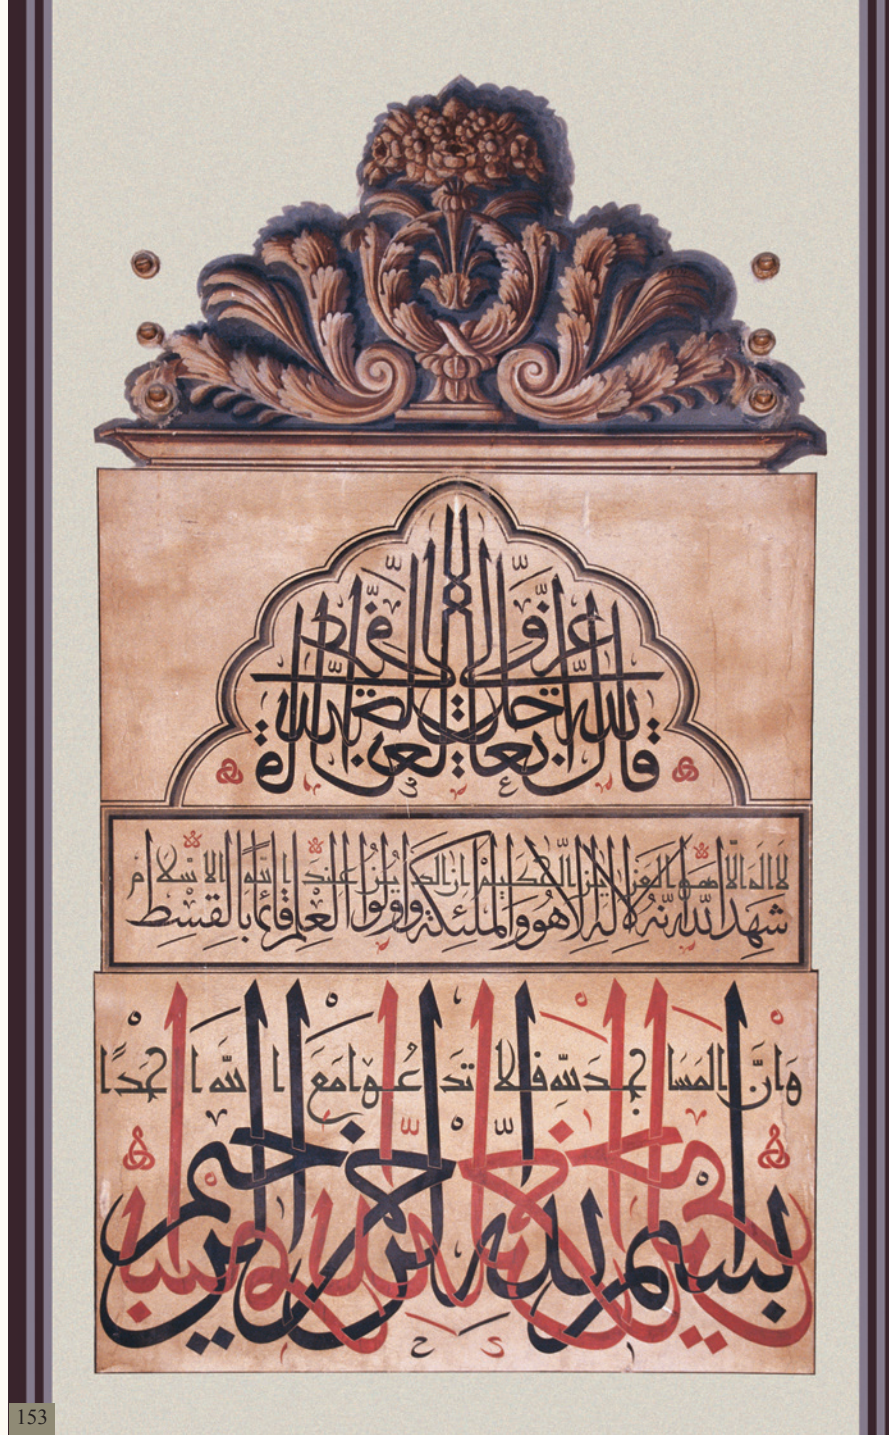 شهد الله انه لا اله الا هو والملئكة واولوا العلم قائما بالقسط
لا اله الا هو العزيز الحكيم ان الدين عند الله الاسلام
وَانَّ المَسَاجد لله فلا تدعوا مَعَ الله احدًا
بسم الله الرحمن الرحيم
153